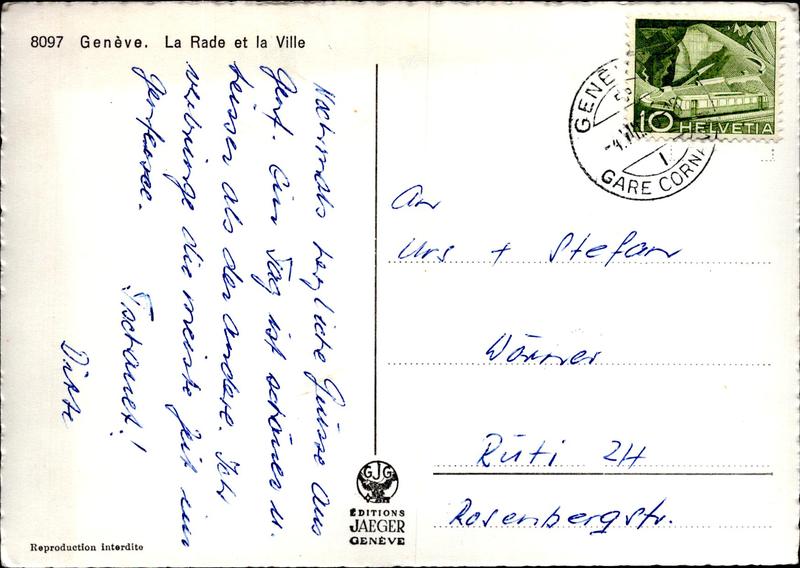 8097 Genève. La Rade et la Ville
Nochmals herzliche Grüsse aus
Genf. Ein Tag ist schöner u.
heisser als der andere. Ich
verbringe die meiste Zeit im
Genfersee.
Tschauet!
HELVETIA
10
GENÈ
GARE CORNA
An
Urs + Stefan
Wörner
Rüti ZH
Rosenbergstr.
GJG
ÉDITIONS
JAEGER
GENÈVE
Reproduction interdite